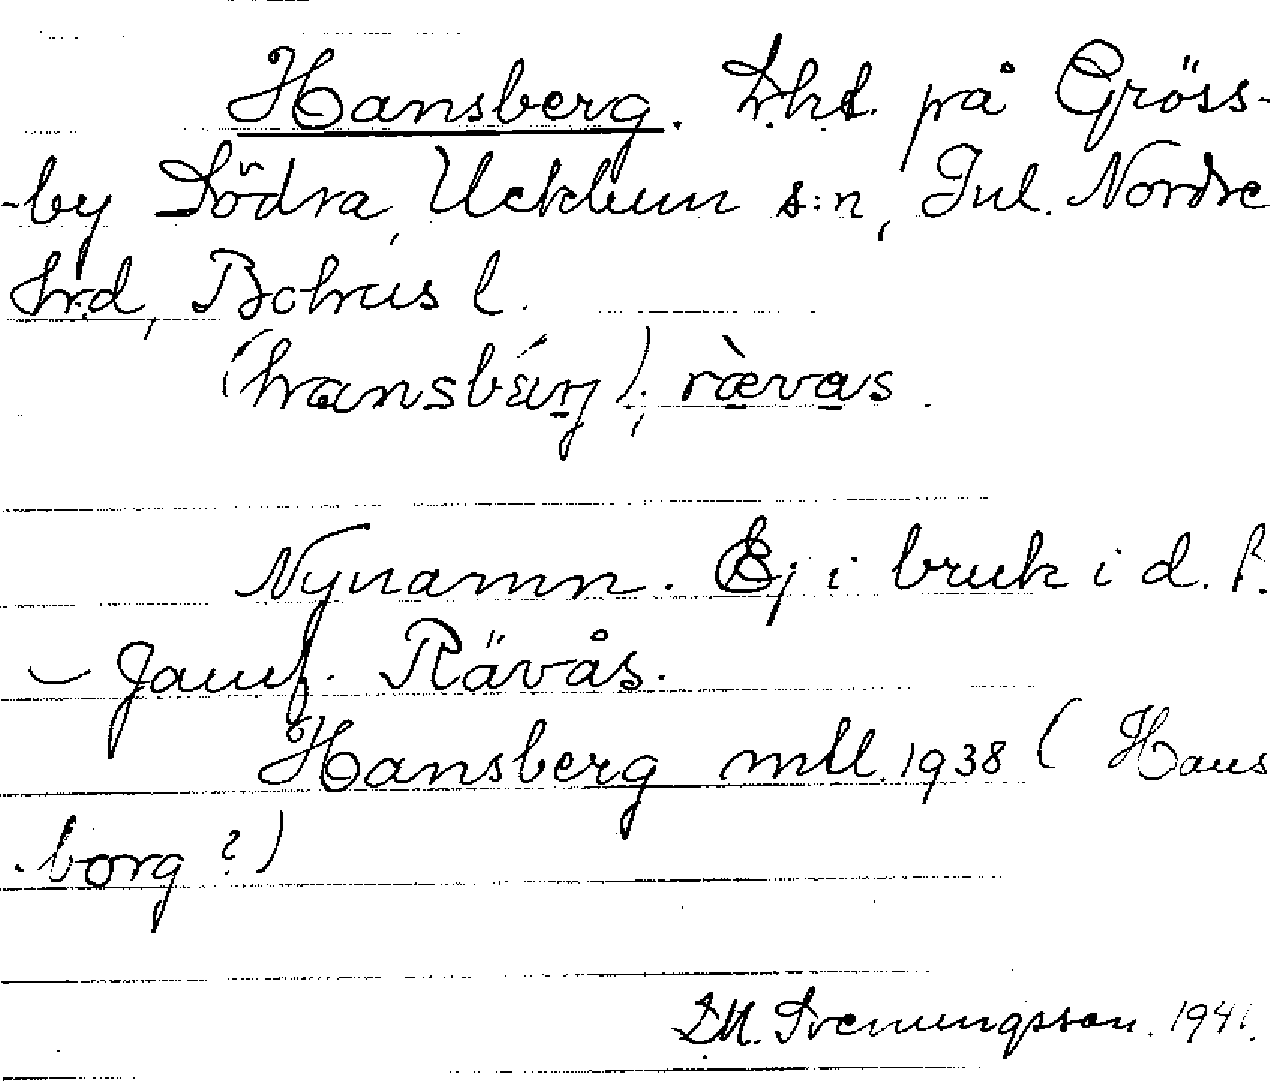 Hansberg. Lht. på Gröss-
-by Södra, Ucklum s:n, Inl. Nordre
hrd, Bohus l.
(hansbérg); rævås.
Nynamn. Ej i bruk i d. f.
– Jämf. Rävås.
Hansberg mtl. 1938 (Hans
-borg?)
D.M. Svenungsson. 1941.